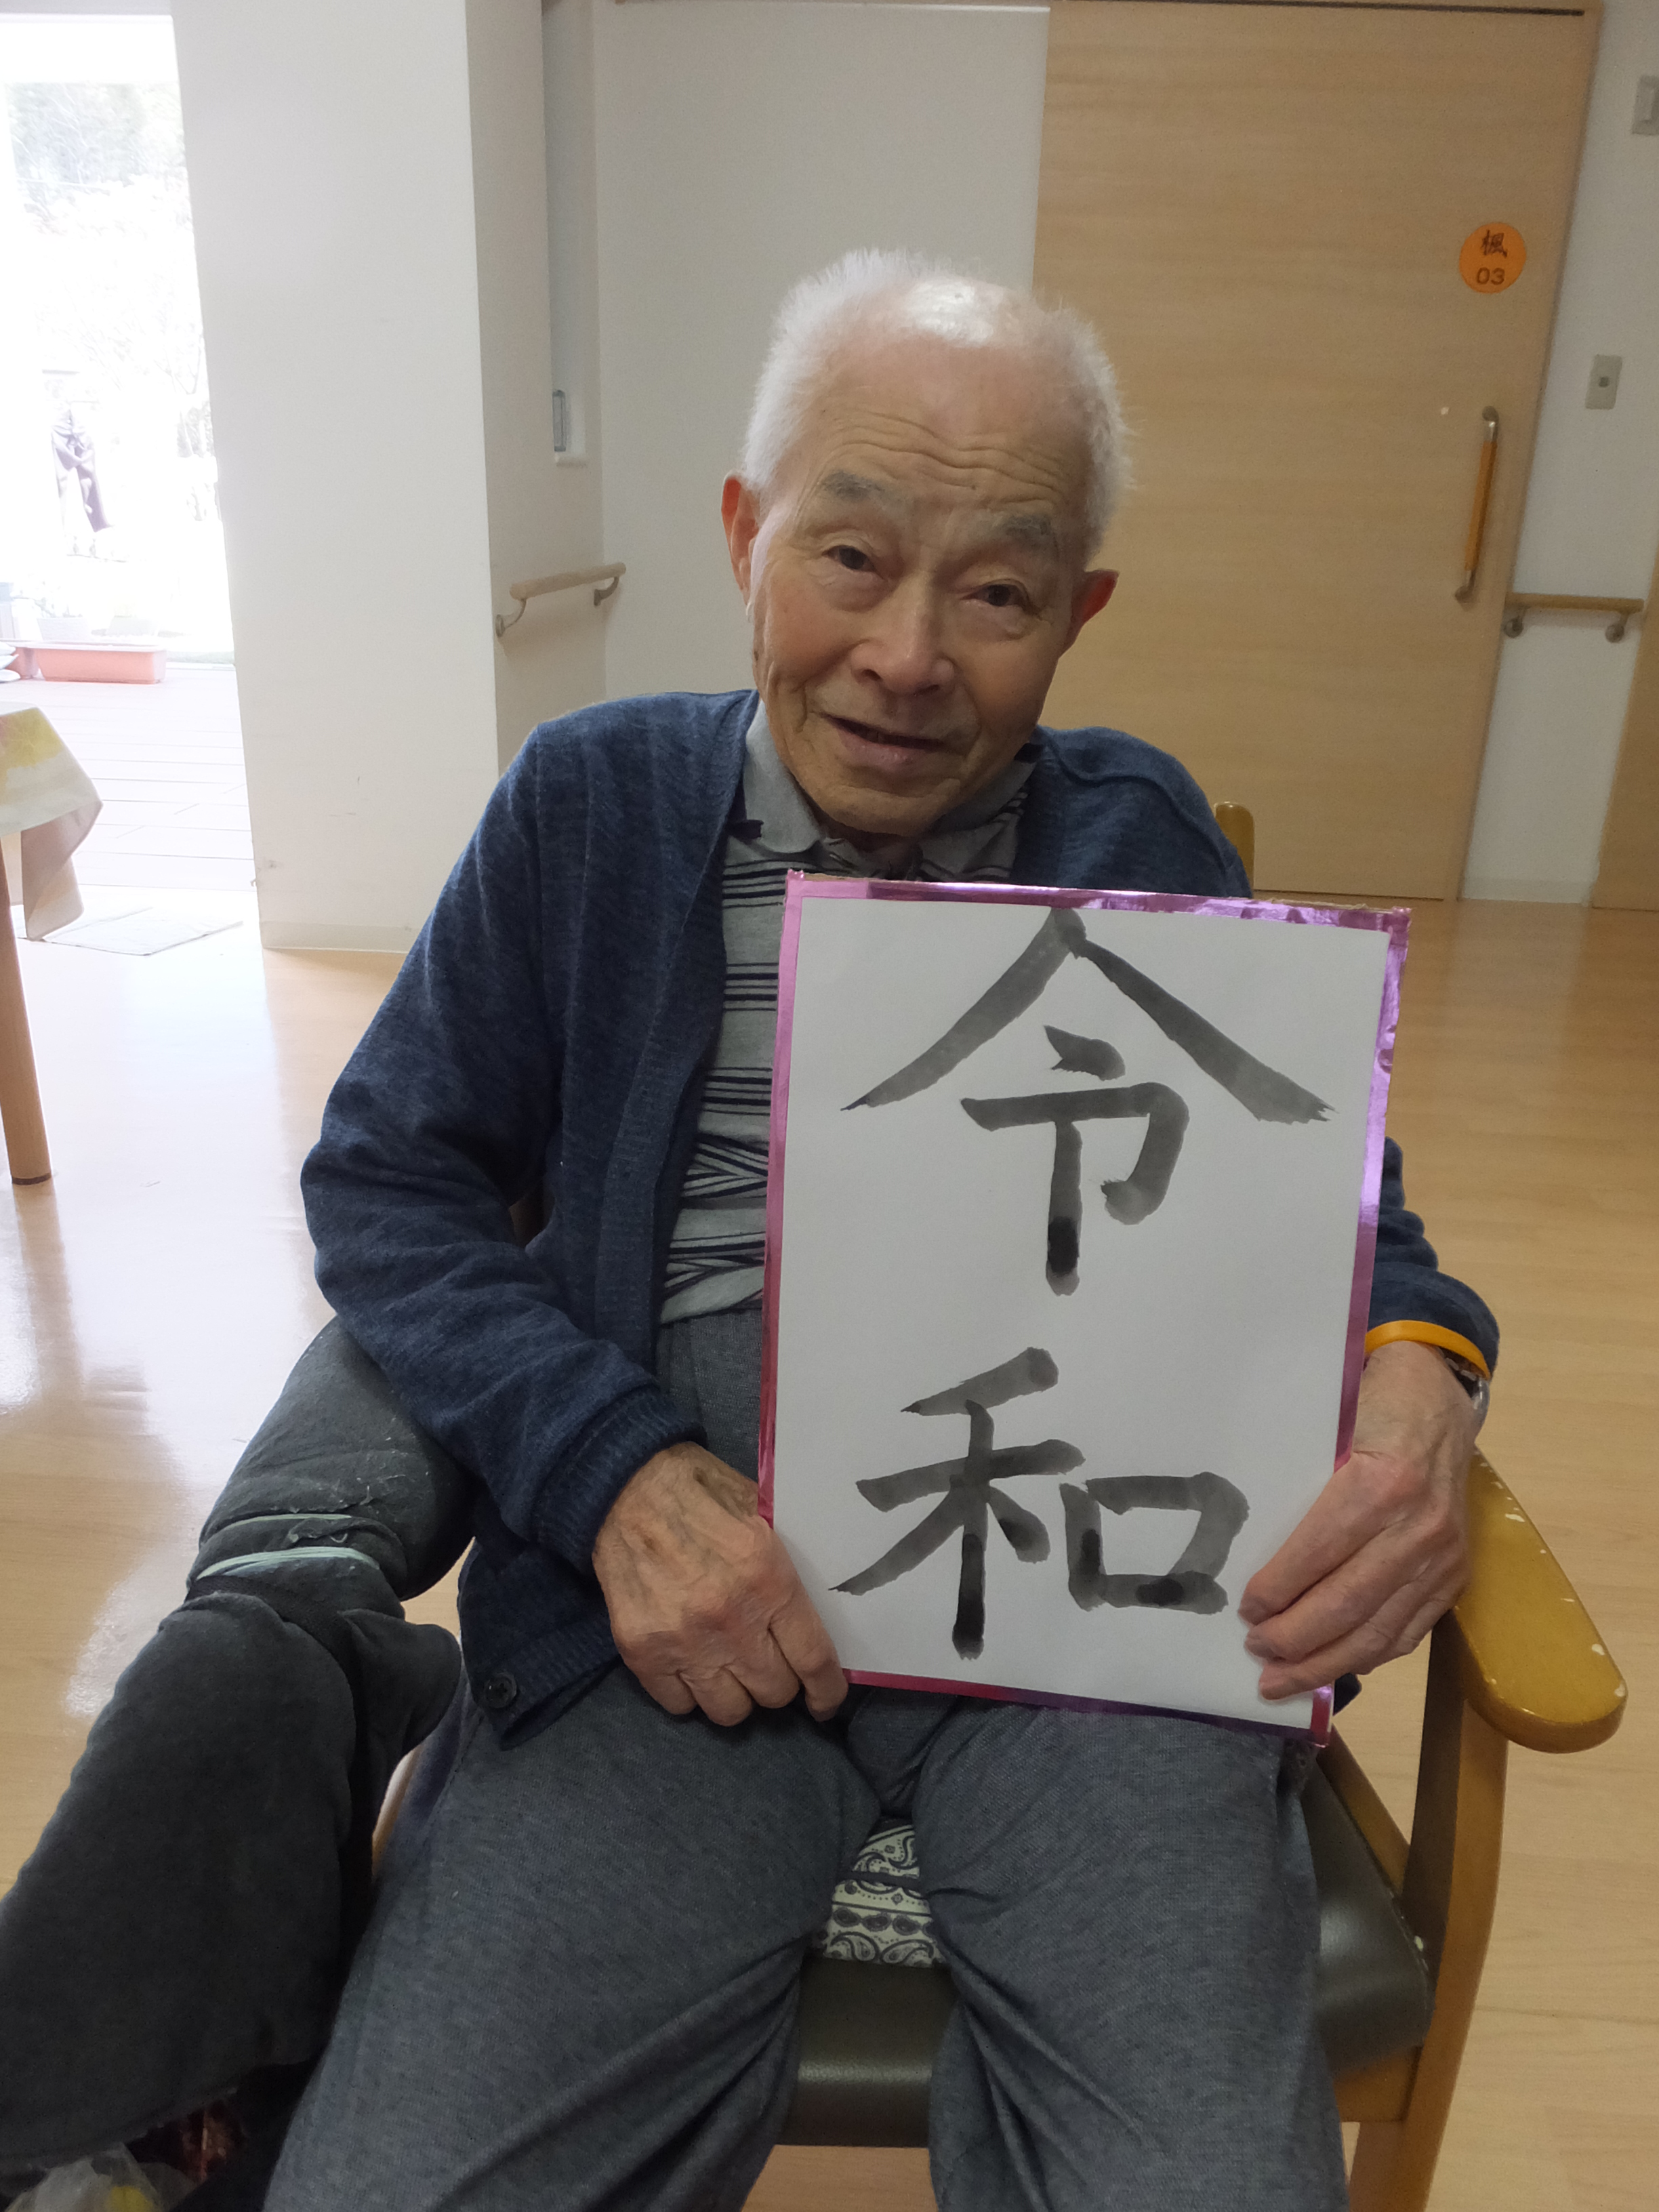 楓
03
令
和